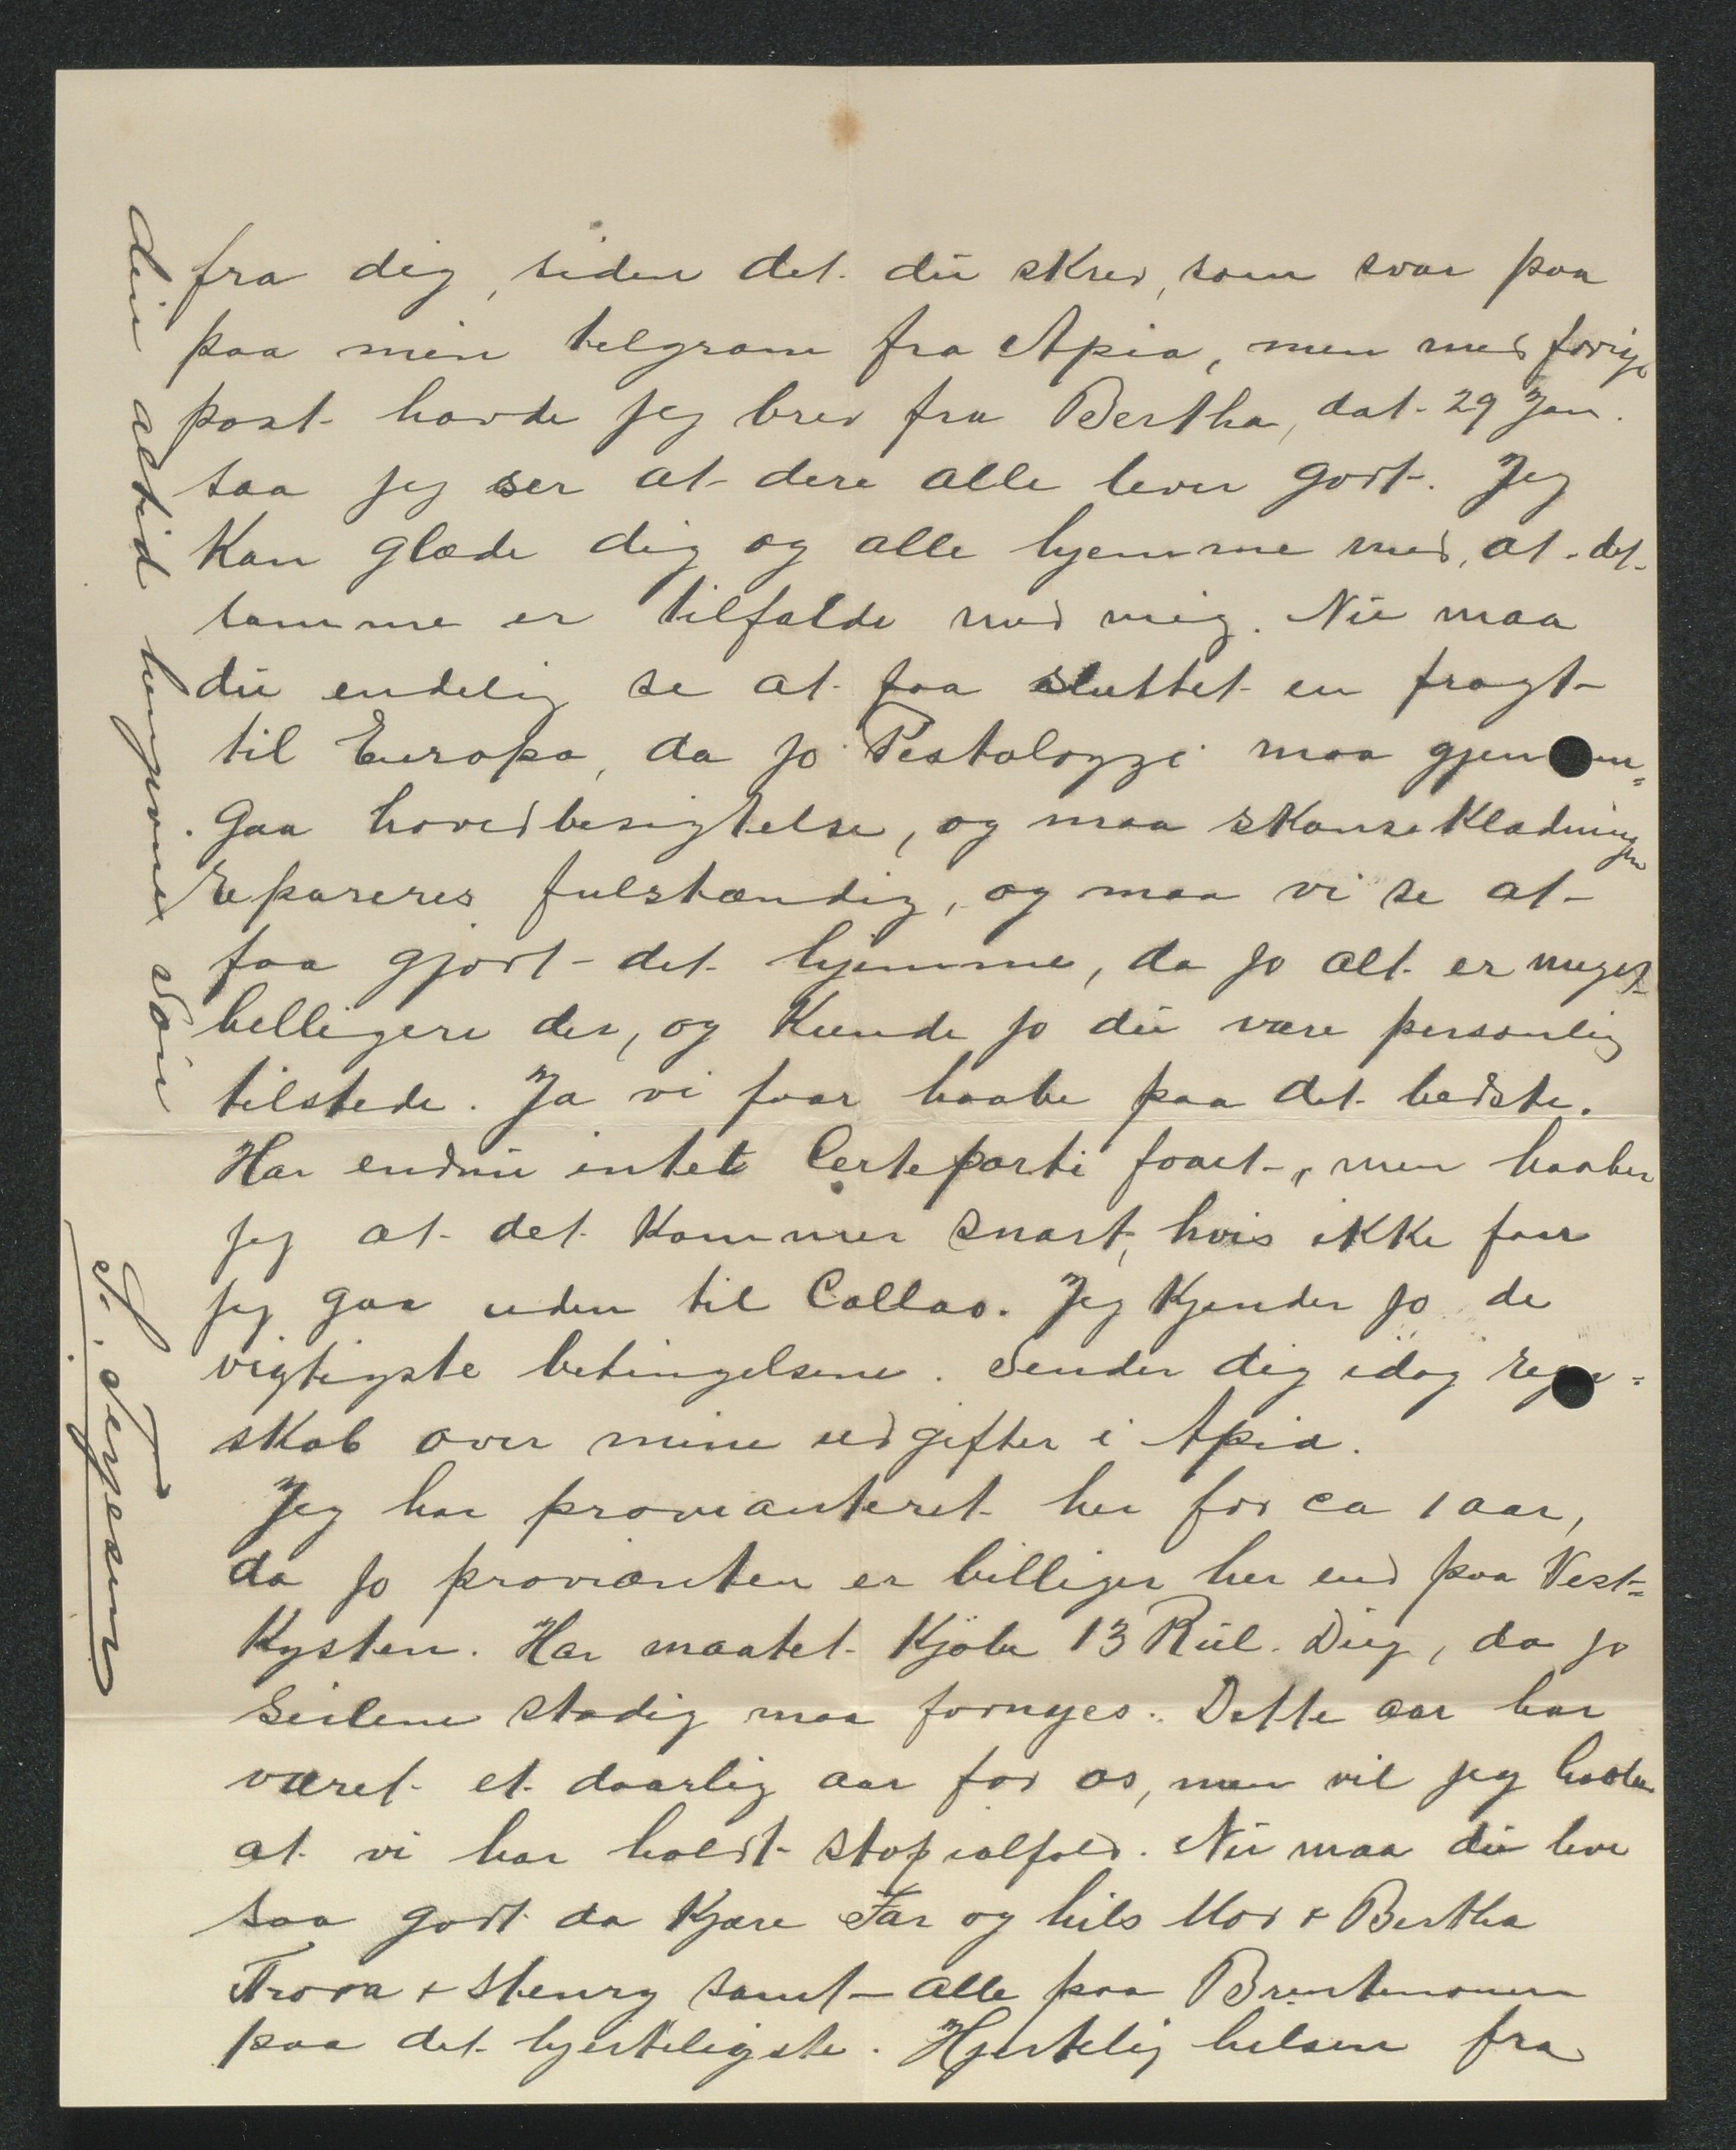 fra dig, siden det du skrev, som svar paa
paa min telgram fra Apia, men med forige
post havde jeg brev fra Bertha, dat. 29 Jan.
saa jeg ser at dere alle lever godt. Jeg
kan glæde dig og alle hjemme med, at det
samme er tilfælde med mig. Nu maa
du endelig se at faa sluttet en fragt
til Europa, da jo Pestalozzi maa gjennem-
gaa hovedbesigtelse, og maa skanseklædningen
repareres fulstændig, og maa vi se at
faa gjort det hjemme, da jo alt er meget
belligere der, og kunde jo du være personlig
tilstede. Ja vi faar haabe paa det bedste.
Har endnu intet Certeparti faaet, men haaber
jeg at det kommer snart, hvis ikke faar
jeg gaa uden til Callao. Jeg kjender jo de
vigtigste betingelserne. Sender dig idag regn-
skab over mine udgifter i Apia.
Jeg har provianteret her for ca 1 aar,
da jo provianten er billiger her end paa Vest-
kysten. Har maatet kjöbe 13 Rul. Dug, da jo
seilene stadig maa fornyes. Dette aar har
været et daarlig aar for os, men vil jeg haabe
at vi har holdt stop ialfald. Nu maa du leve
saa godt da kjære Far og hils Mor & Bertha
& Henry samt alle paa
paa det hjerteligste. Hjertelig hilsen fra
din altid hengivne Søn